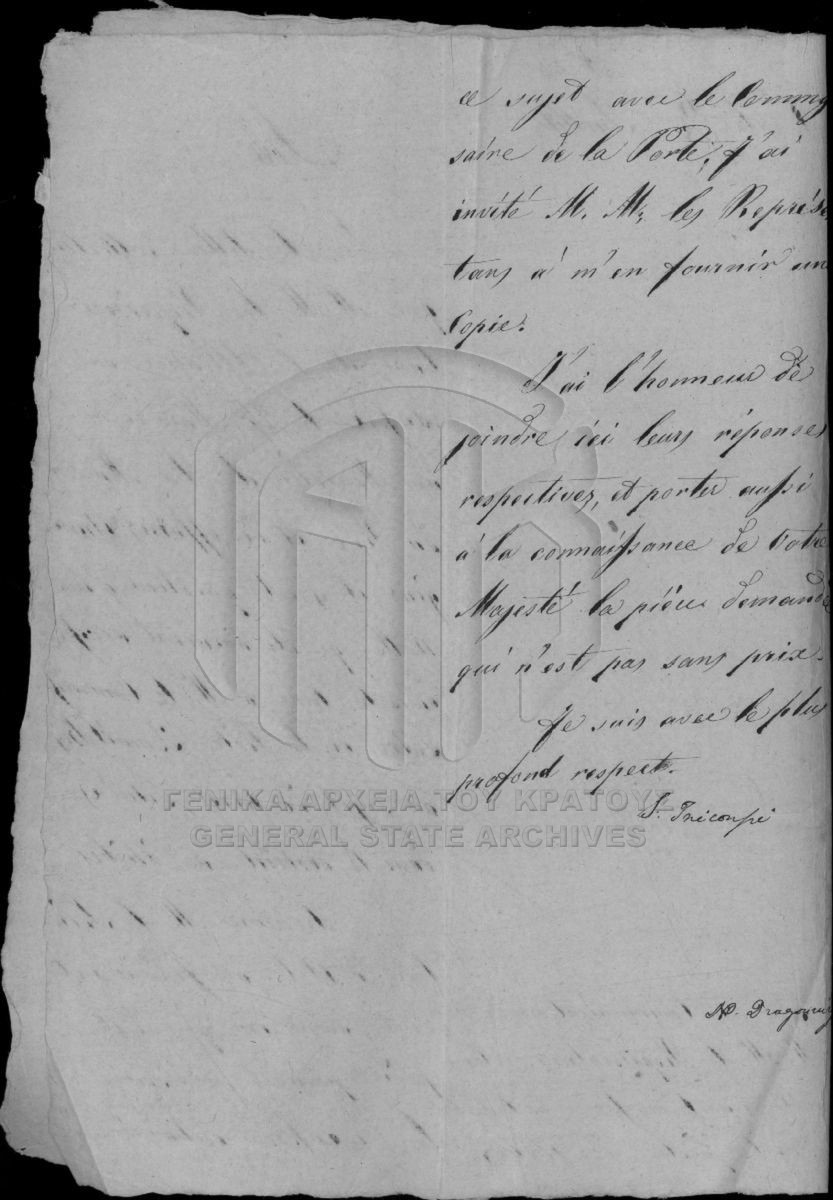 ce sujet avec le Commis
saire de la Porte. J'ai
invité M. Mrs les Représen
tans à m'en fournir une
Copie.
J'ai l'honneur de
joindre ici leurs réponses
respectives, et porter aussi
à la connaissance de Votre
Majesté la pièce demandée
qui n'est pas sans prix.
Je suis avec le plus
profond respect.
S. Tricoupi
ΓΕΝΙΚΑ ΑΡΧΕΙΑ ΤΟΥ ΚΡΑΤΟΥΣ
GENERAL STATE ARCHIVES
N. Dragoumy